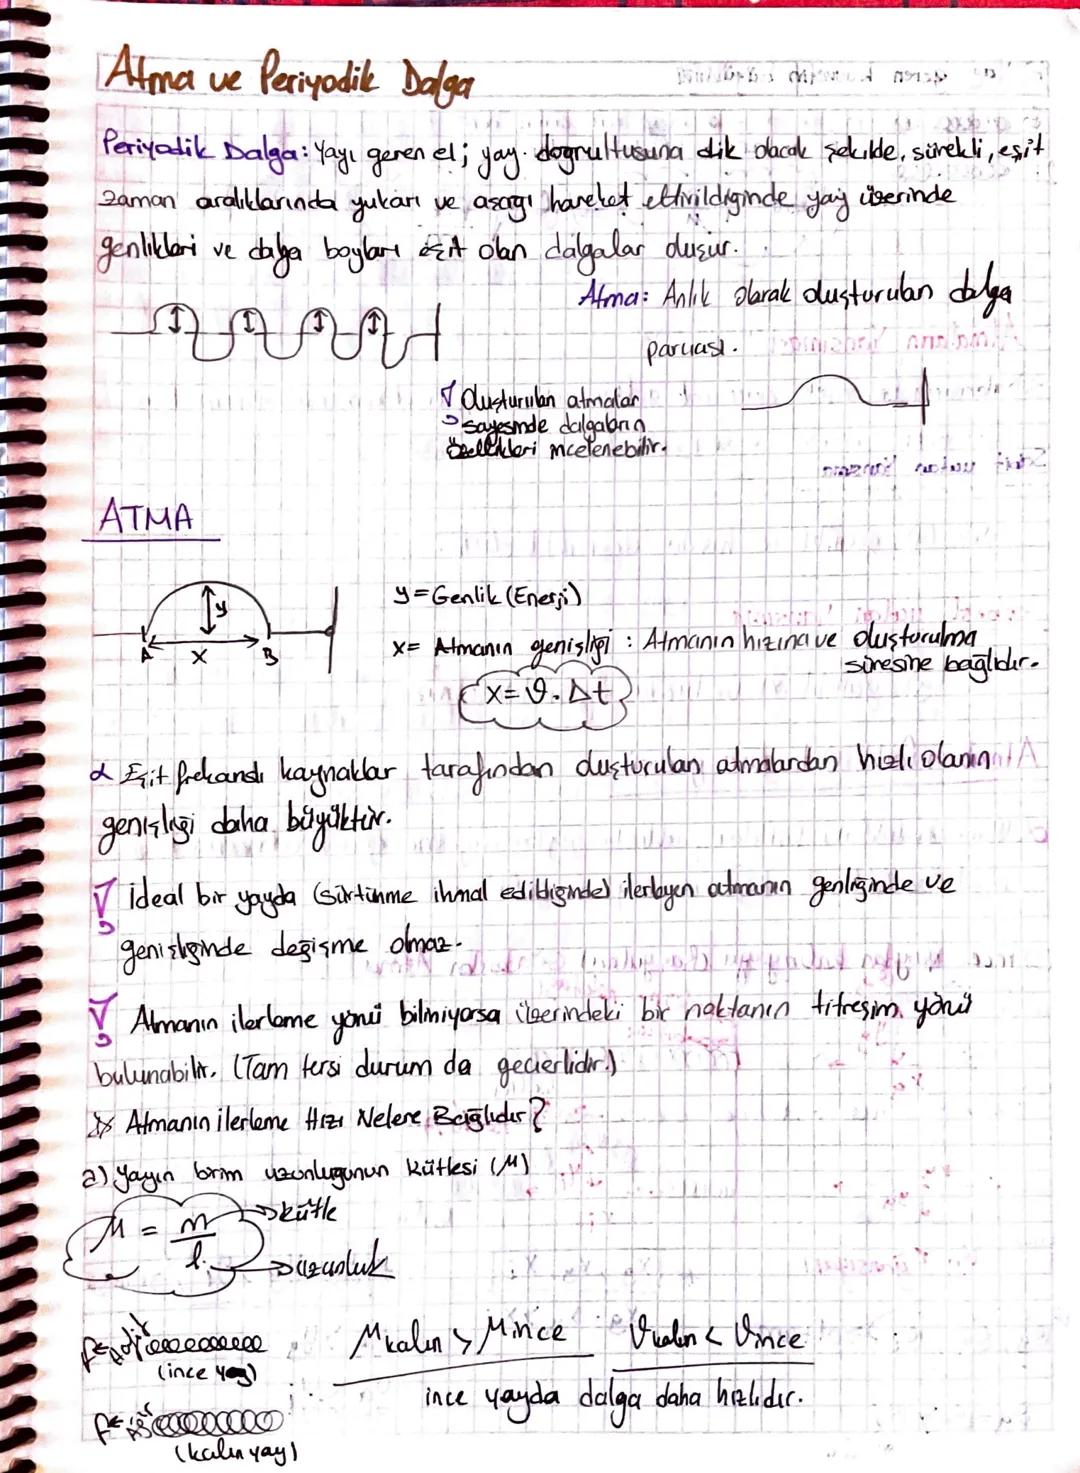 Atma ve Periyodik Dalga
Periyodik Dalga: Yayı geren el; yay doğrultusuna dik olacak şekilde, sürekli, eşit
zaman aralıklarında yukarı ve aşağı hareket ettirildiğinde yay üzerinde
genlikleri ve dalga boyları eşit olan dalgalar oluşur.
Atma: Anlık olarak oluşturulan dalga
parçası.
Oluşturulan atmalar
sayesinde dalgaların
özellikleri incelenebilir.
ATMA
y
A x B
y=Genlik (Enerji)
x= Atmanın genişliği : Atmanın hızına ve oluşturulma
süresine bağlıdır.
x= ϑ. Δt
α Eşit frekanslı kaynaklar tarafından oluşturulan atmalardan hızlı olanın
genişliği daha büyüktür.
İdeal bir yayda (sürtünme ihmal edildiğinde) ilerleyen atmanın genliğinde ve
genişliğinde değişme olmaz.
Atmanın ilerleme yönü biliniyorsa üzerindeki bir noktanın titreşim yönü
bulunabilir. (Tam tersi durum da geçerlidir.)
Atmanın ilerleme Hızı Nelere Bağlıdır?
a) Yayın birim uzunluğunun kütlesi (μ)
μ = m/l
→kütle
→uzunluk
(ince yay)
μkalın > μince ϑkalın < ϑince
ince yayda dalga daha hızlıdır.
(kalın yay)